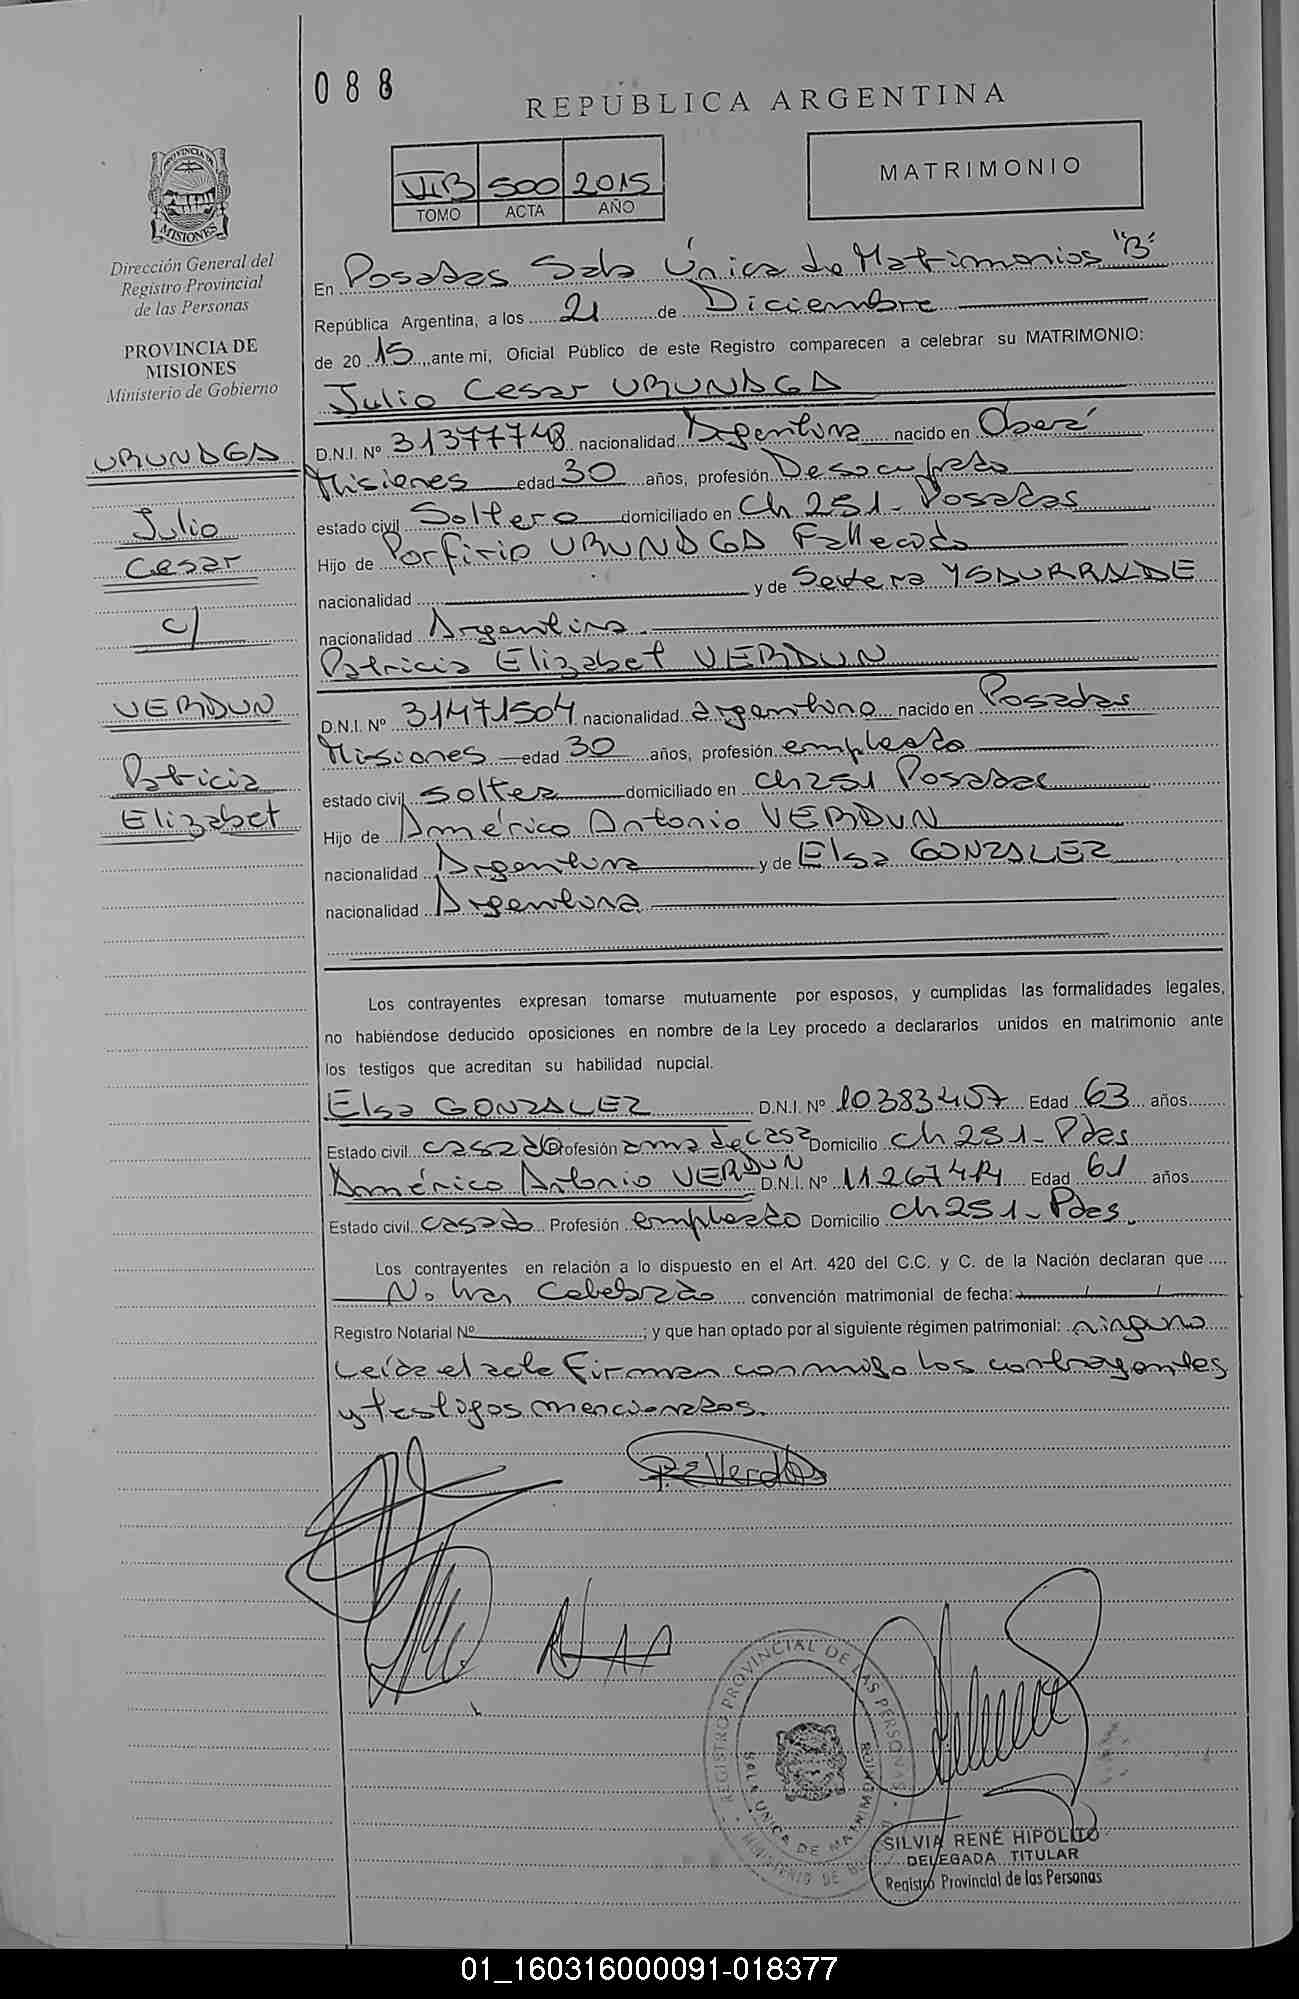 088
REPÚBLICA ARGENTINA
MATRIMONIO
VIB 500 2015
TOMO ACTA AÑO
PROVINCIA DE
MISIONES
Dirección General del
Registro Provincial
de las Personas
PROVINCIA DE
MISIONES
Ministerio de Gobierno
URUNAGA
Julio
Cesar
c/
VERDUN
Patricia
Elizabet
En Posadas Sala Única de Matrimonios "B"
República Argentina, a los 21 de Diciembre
de 20 15 ante mi, Oficial Público de este Registro comparecen a celebrar su MATRIMONIO:
Julio Cesar URUNAGA
D.N.I. Nº 31377748 nacionalidad Argentina nacido en Oberá
Misiones edad 30 años, profesión Desocupado
estado civil Soltero domiciliado en Ch 251 - Posadas
Hijo de Porfirio URUNAGA Fallecido
nacionalidad y de Severa YSAURRALDE
nacionalidad Argentina
Patricia Elizabet VERDUN
D.N.I. Nº 31471504 nacionalidad argentina nacido en Posadas
Misiones edad 30 años, profesión empleada
estado civil soltera domiciliado en Ch 251 Posadas
Hijo de Américo Antonio VERDUN
nacionalidad Argentina y de Elsa GONZALEZ
nacionalidad Argentina
Los contrayentes expresan tomarse mutuamente por esposos, y cumplidas las formalidades legales,
no habiéndose deducido oposiciones en nombre de la Ley procedo a declararlos unidos en matrimonio ante
los testigos que acreditan su habilidad nupcial.
Elsa GONZALEZ D.N.I. Nº 10383457 Edad 63 años
Estado civil casada Profesión ama de casa Domicilio ch 251 - Pdas
Américo Antonio VERDUN D.N.I. Nº 11267414 Edad 61 años
Estado civil casado Profesión empleado Domicilio ch 251 - Pdas.
Los contrayentes en relación a lo dispuesto en el Art. 420 del C.C. y C. de la Nación declaran que
No han Celebrado convención matrimonial de fecha: / /
Registro Notarial Nº ; y que han optado por al siguiente régimen patrimonial: ninguno
Leída el acta Firman conmigo los contrayentes
y testigos mencionados.
P. E Verdun
REGISTRO PROVINCIAL DE LAS PERSONAS
SALA UNICA DE MATRIMONIOS
SILVIA RENÉ HIPÓLITO
DELEGADA TITULAR
Registro Provincial de las Personas
01_160316000091-018377